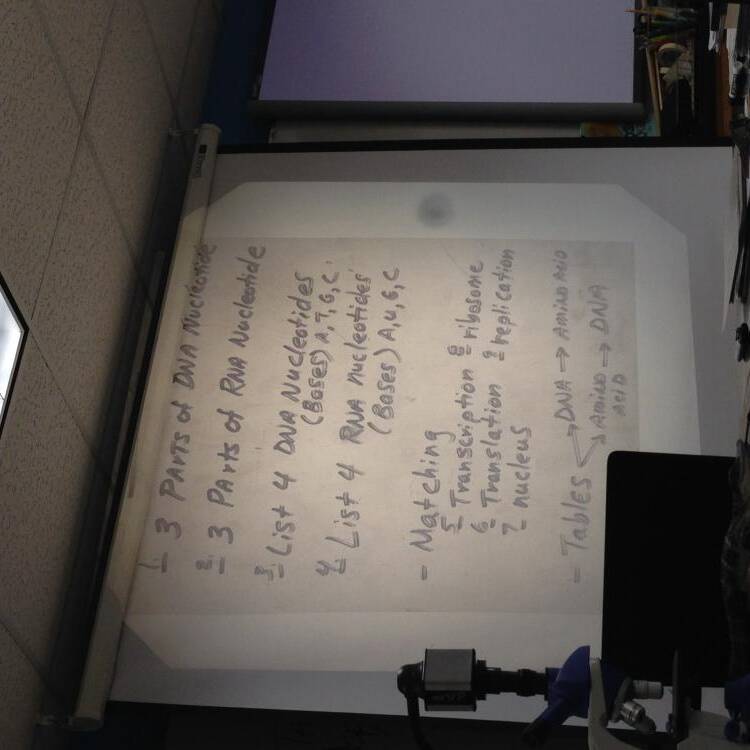 1. 3 Parts of DNA Nucleotide
2. 3 Parts of RNA Nucleotide
3. List 4 DNA Nucleotides
(Bases) A, T, G, C
4. List 4 RNA nucleotides
(Bases) A, U, G, C
- Matching
5 Transcription 8 ribosome
6 Translation 9 replication
7 nucleus
- Tables → DNA → AMINO ACID
→ AMINO → DNA
ACID